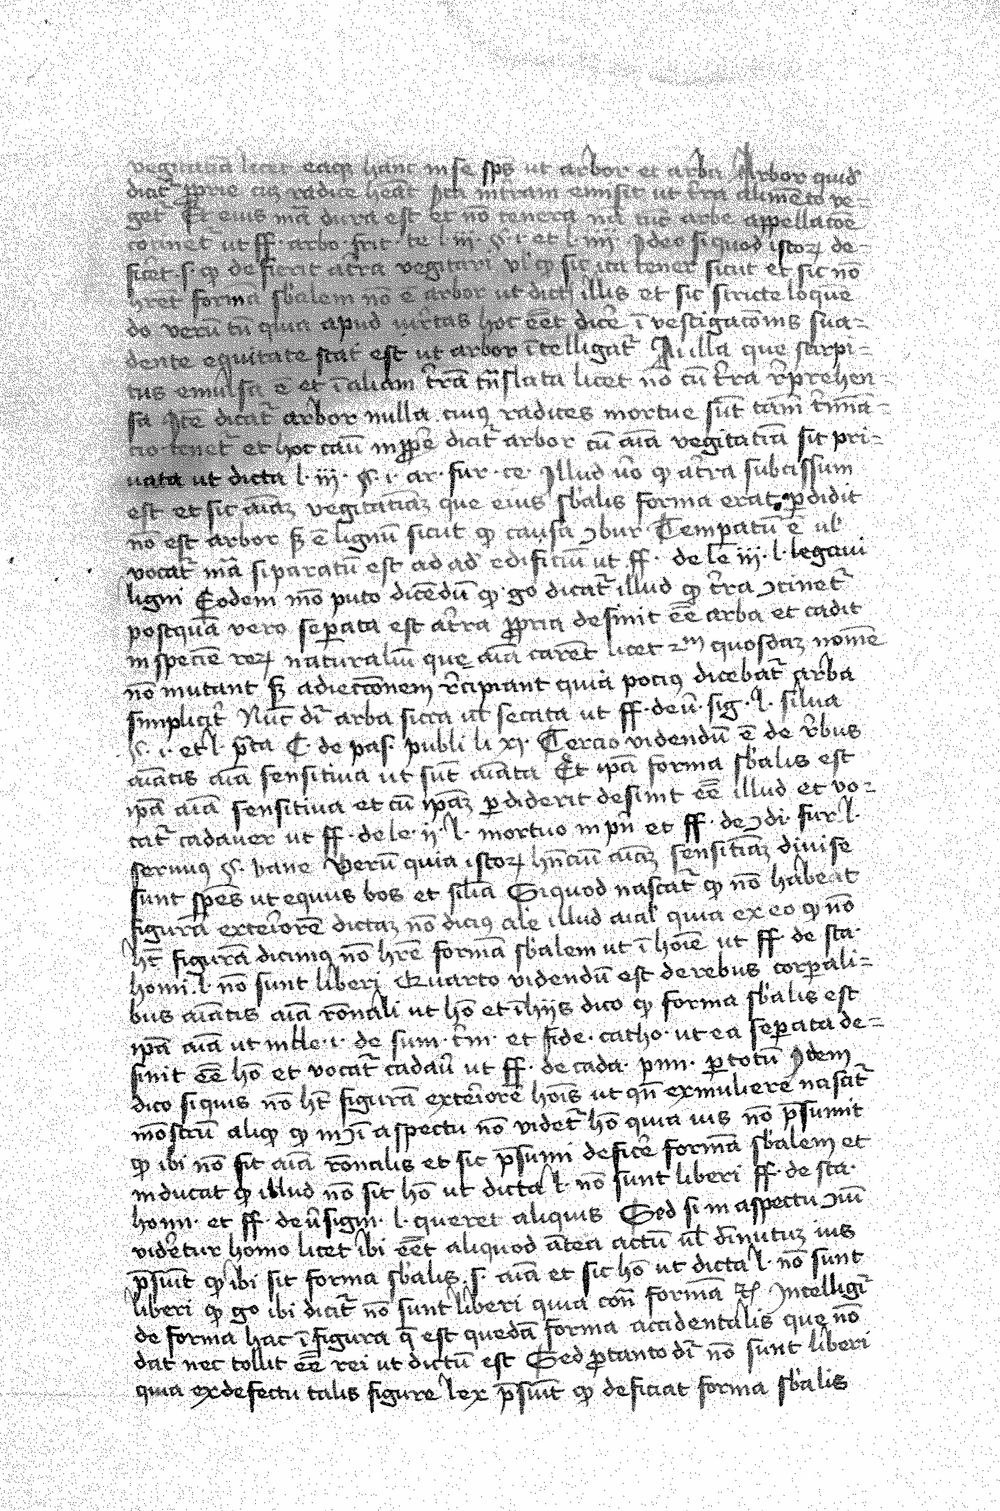 vegitatiã licet eaqꝫ hanc in se sps̃ ut arbor et arba Arbor quid̃
dicat᷑ ꝓprie cũ radice heãt Ita in terram emisit ut t̃ra alimẽto ve=
get᷑ Et eius mã dura est et nõ tenera nã tũc arbe appellacõe
cõtinet᷑ ut ff. arbo. fur. ce l. iii. §. i. et l. iiii. Ideo si quod istoꝝ de=
sic̃et .s. ꝙ desierit at̃ra vegitari vl̃ ꝙ sic ita tener sicut et sic nõ
hret formã sb̃alem nõ ẽ arbor ut dictis illis et sic stricte loquẽ
do verũ tñ quia apud hoc eẽt dicẽ ĩvestigacõnis sua=
dente equitate stat est ut arbor ĩtelligat᷑ Ai illa que stirpi=
tus emulsa ẽ et ĩ aliam t̃rã tñslata licet nõ cũ t̃ra r̃prehen
sa Itẽ dicat᷑ arbor nulla cuiꝰ radices mortue sũt tam̃
tenet᷑ et hoc cãu inꝓpẽ dicit᷑ arbor cũ aĩa vegitatiã sit pri=
uata ut dicta l. iii. §. i. ar. fur. ce. Illud ũo ꝙ at̃ra subcissum
est et sic aĩaꝫ vegitatiaꝫ que eius sb̃alis forma erat ꝑdidit
nõ est arbor sꝫ ẽ lignũ sicut ꝙ causa ɔbur Temꝑatũ ẽ ul̃
vocat᷑ mã si paratũ est ad ad edificiũ ut ff. de le iii. l. legaui
ligni Eodem mõ puto dicẽdũ ꝙ go dicat᷑ illud ꝙ t̃ra ɔtinet᷑
postquã vero seꝑata est at̃ra ꝓpria desinit eẽ arba et cadit
in speciẽ reꝝ naturaliũ que aĩa carẽt licet ẜm quosdaꝫ nomẽ
nõ mutant sꝫ adiectõnem r̃cipiant quia pociꝰ dicebat᷑ arba
simplicit᷑ Nũc dr̃ arba sicca ul̃ secata ut ff. de ũ. sig. l. silua
§. i. et l. pr̃ta C. de pas. publi li xi. Tercio videndũ ẽ de r̃bus
aĩatis aĩa sensitiua ut sũt aĩata Et ipã forma sb̃alis est
ipã aĩa sensitiua et cũ ipaꝫ ꝑdiderit desinit eẽ illud et vo=
cat᷑ cadauer ut ff. de le. ii. l. mortuo in pñ et ff. de ɔdi. fur. l.
seruuꝰ §. bane Verũ quia istoꝝ hñciũ aĩaꝫ sensitĩaꝫ diuise
sunt sp̃es ut equus bos et silĩa Siquod nascat᷑ ꝙ nõ habeat
figurã exteriorẽ dictaꝫ nõ diciꝰ ale illud aial̃ quia ex eo ꝙ nõ
ht̃ figurã dicimꝰ nõ hr̃e formã sb̃alem ut ĩ hoĩe ut ff. de sta.
homi. l. nõ sunt liberi Quarto videndũ est de rebus corꝑali=
bus aĩatis aĩa rõnali ut hõ et ĩ hiis dico ꝙ forma sb̃alis est
ipã aĩa ut in cle. i. de sum. tri. et fide. catho. ut ea seꝑata de=
sinit eẽ hõ et vocat᷑ cadau̾ ut ff. de cada. pun. ꝑ totũ Idem
dico si quis nõ ht̃ figurã exteriorẽ hoĩs ut qñ ex muliere nascit᷑
mõstrũ aliqꝫ ꝙ in ɔĩ aspectu nõ videt᷑ hõ quia ius nõ p̃sumit
ꝙ ibi nõ sit aĩa rõnalis et sic p̃sumi deficẽ formã sb̃alem et
inducat ꝙ illud nõ sit hõ ut dicta l. nõ sunt liberi ff. de sta.
homi. et ff. de ũ signi. l. queret aliquis Sed si in aspectu ɔiũ
videretur homo licet ibi eẽt aliquod ãtea actũ ul̃ dĩnutuꝫ ius
p̃suit ꝙ ibi sit forma sb̃alis .s. aĩa et sic hõ ut dicta l. nõ sunt
liberi ꝙ go ibi dicit᷑ nõ sunt liberi quia con̄ formã ⁊c̃ Intelligit᷑
de forma hac ĩ figura q̃ est quedã forma accidentalis que nõ
dat nec tollit eẽ rei ut dictũ est Sed ꝓtanto dr̃ nõ sunt liberi
quia ex defectu talis figure lex p̃suit ꝙ deficiat forma sb̃alis